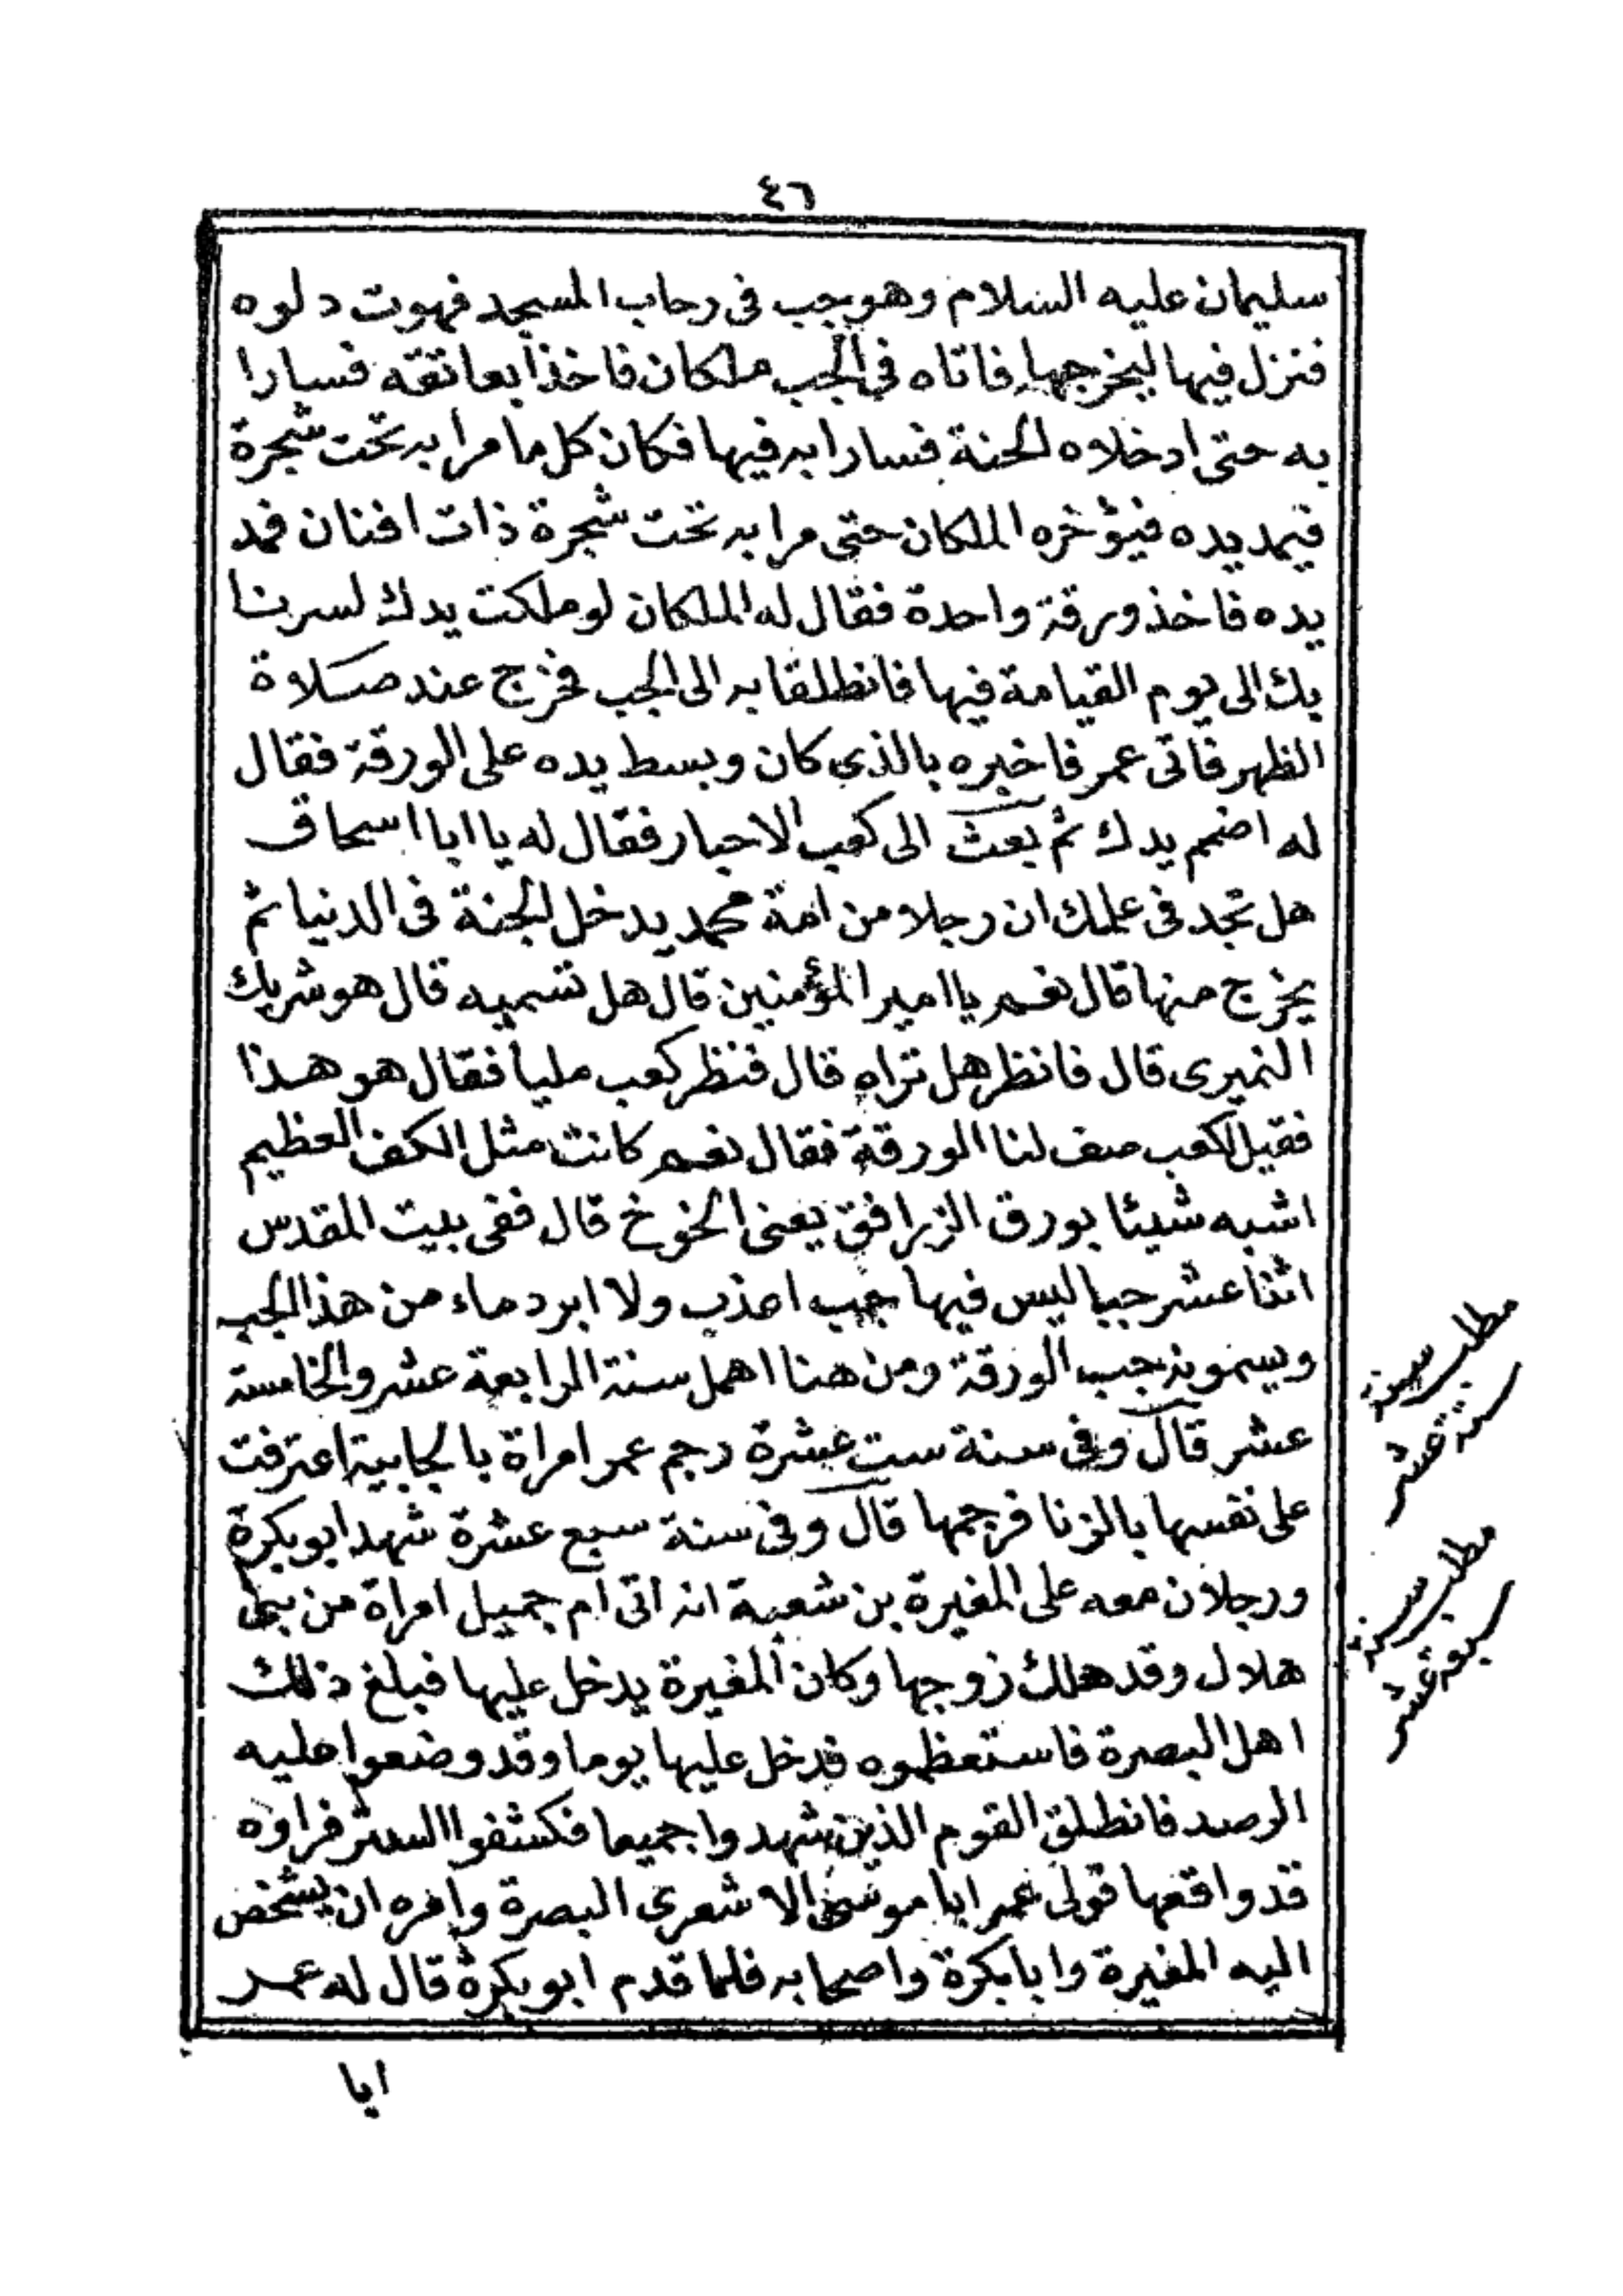 ٤٦
سليمان عليه السلام وهو جب فى رحاب المسجد فهوت دلوه
فنزل فيها ليخرجها فاتاه فى الجب ملكان فاخذا بعاتقه فسارا
به حتى ادخلاه الجنة فسارا به فيها فكان كل ما مرا به تحت شجرة
فيمد يده فيؤخره الملكان حتى مرا به تحت شجرة ذات افنان فمد
يده فاخذ ورقة واحدة فقال له الملكان لو ملكت يدك لسرنا
بك الى يوم القيامة فيها فانطلقا به الى الجب فخرج عند صلاة
الظهر فاتى عمر فاخبره بالذى كان وبسط يده على الورقة فقال
له اضمم يدك ثم بعث الى كعب الاحبار فقال له يا ابا اسحاق
هل تجد فى علمك ان رجلا من امة محمد يدخل الجنة فى الدنيا ثم
يخرج منها قال نعم يا امير المؤمنين قال هل تسميه قال هو شريك
النميرى قال فانظر هل تراه قال فنظر كعب مليا فقال هو هذا
فقيل لكعب صف لنا الورقة فقال نعم كانت مثل الكف العظيم
اشبه شيئا بورق الزرافق يعنى الخوخ قال ففى بيت المقدس
اثنا عشر جبا ليس فيها جب اعذب ولا ابرد ماء من هذا الجب
ويسمونه جب الورقة ومن هنا اهمل سنة الرابعة عشر والخامسة
عشر قال وفى سنة ست عشرة رجم عمر امراة بالجابية اعترفت
على نفسها بالزنا فرجمها قال وفى سنة سبع عشرة شهد ابو بكرة
ورجلان معه على المغيرة بن شعبة انه اتى ام جميل امراة من بنى
هلال وقد هلك زوجها وكان المغيرة يدخل عليها فبلغ ذلك
اهل البصرة فاستعظموه فدخل عليها يوما وقد وضعوا عليه
الرصد فانطلق القوم الذين شهدوا جميعا فكشفوا الستر فراوه
قد واقعها فولى عمر ابا موسى الاشعرى البصرة وامره ان يشخص
اليه المغيرة وابا بكرة واصحابه فلما قدم ابو بكرة قال له عمر
ايا
مطلب سنة
ست عشر
مطلب سنة
سبع عشر